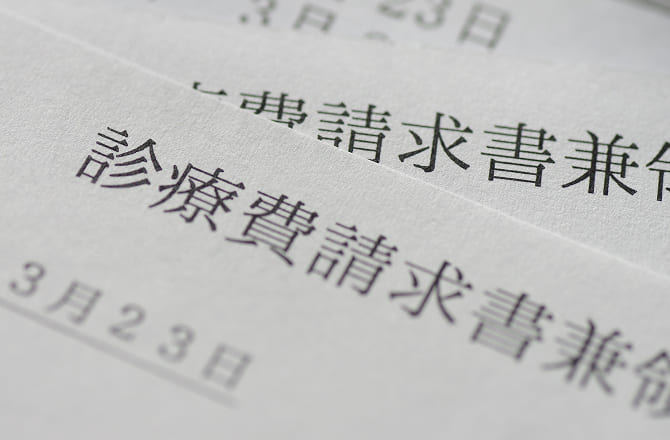 3日
23日
費請求書兼領
診療費請求書兼領
3月23日